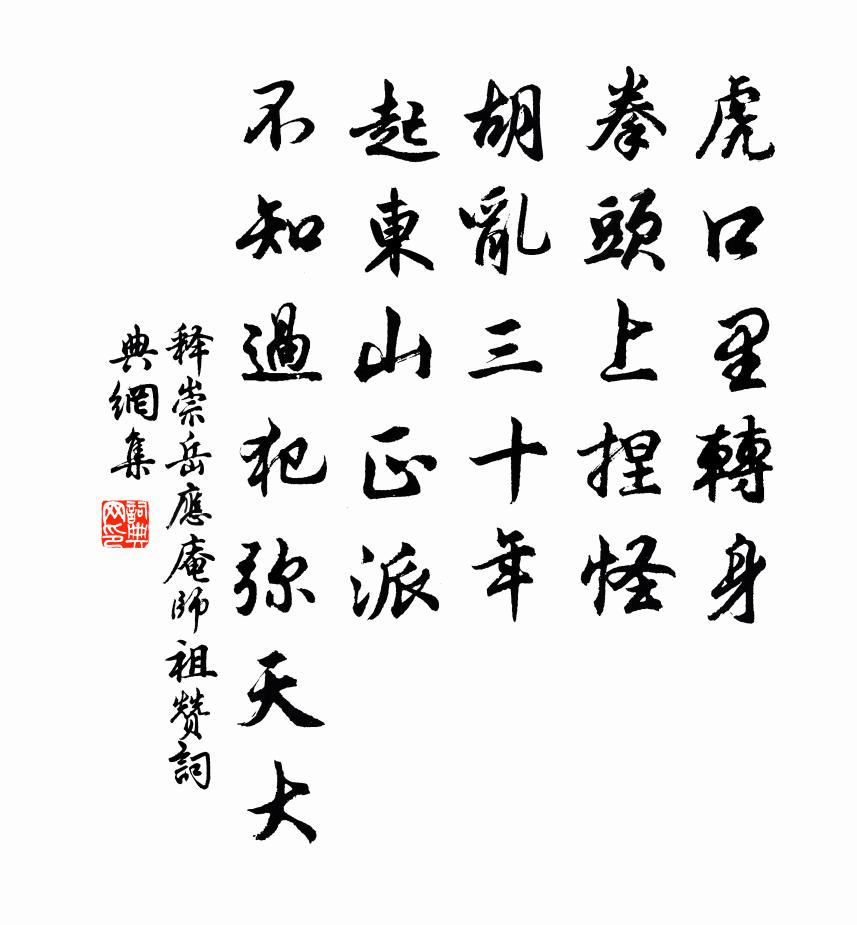 虎口里轉身
拳頭上捏怪
胡亂三十年
起東山正派
不知過犯弥天大
释崇岳應庵師祖赞詞
典網集
詞典
网印